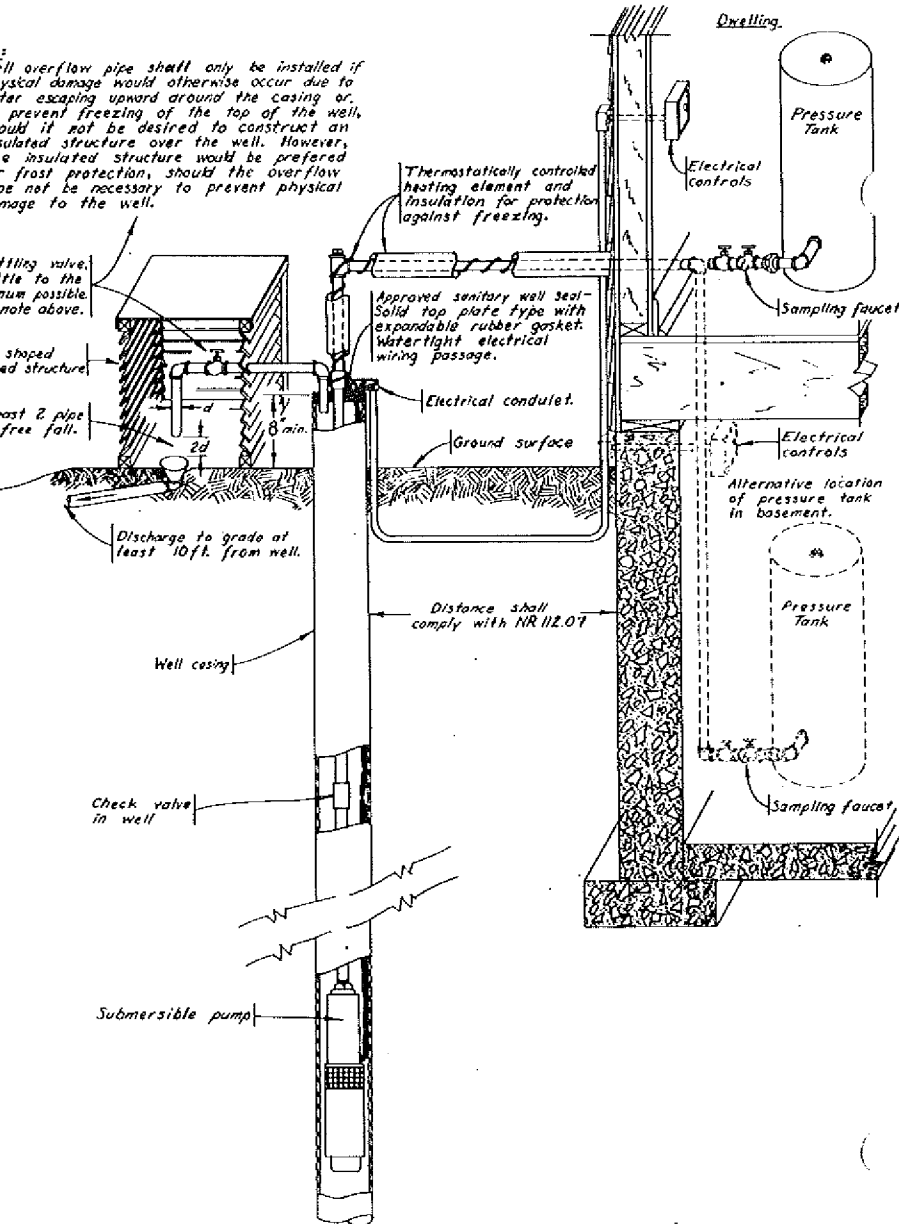 Dwelling
ll overflow pipe shall only be installed if
ysical damage would otherwise occur due to
ter escaping upward around the casing or,
prevent freezing of the top of the well,
ould it not be desired to construct an
sulated structure over the well. However,
e insulated structure would be prefered
r frost protection, should the overflow
pe not be necessary to prevent physical
mage to the well.
Pressure
Tank
Electrical
controls
Thermostatically controlled
heating element and
insulation for protection
against freezing.
ttling valve.
ttle to the
num possible.
note above.
Sampling faucet
Approved sanitary well seal-
Solid top plate type with
expandable rubber gasket.
Watertight electrical
wiring passage.
shaped
ed structure
d
8" min.
Electrical condulet.
east 2 pipe
free fall.
2d
Ground surface
Electrical
controls
Alternative location
of pressure tank
in basement.
Discharge to grade at
least 10 ft. from well.
Distance shall
comply with NR 112.07
Pressure
Tank
Well casing
Check valve
in well
Sampling faucet
Submersible pump